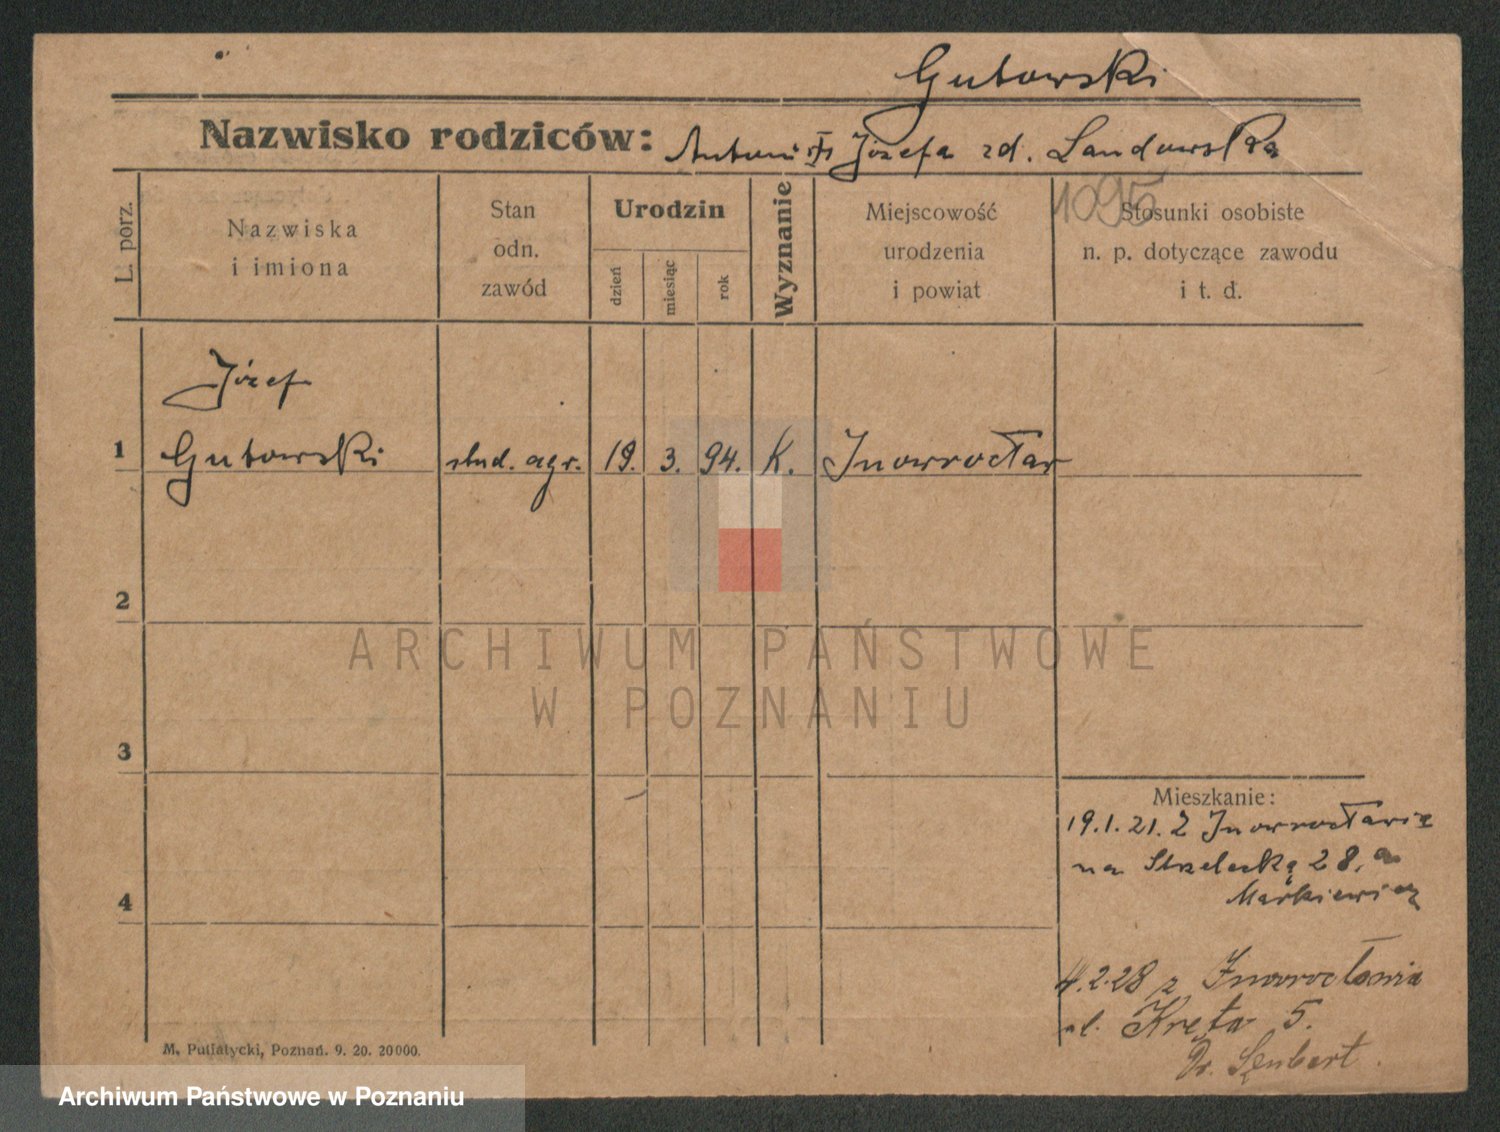 Gutowski
Nazwisko rodziców: Antoni Józefa zd. Landowska
1095
L. porz.
Nazwiska
i imiona
Stan
odn.
zawód
Urodzin
dzień
miesiąc
rok
Wyznanie
Miejscowość
urodzenia
i powiat
Stosunki osobiste
n. p. dotyczące zawodu
i t. d.
Józef
1 Gutowski stud. agr. 19. 3. 94. K. Inowrocław
2
ARCHIWUM PAŃSTWOWE
W POZNANIU
3
Mieszkanie:
19.1.21. Z Inowrocławia
na Strzelecką 28. a
Markiewicz
4
4.2.28 z Inowrocławia
ul. Kręta 5.
Dr.
M. Putiatycki, Poznań. 9. 20. 20000.
Archiwum Państwowe w Poznaniu